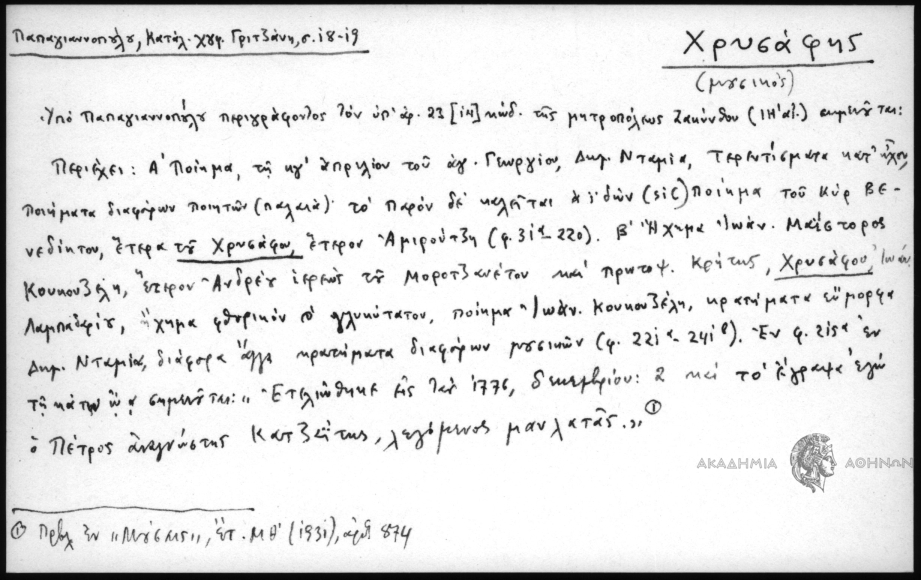 Παπαγιαννοπούλου, Κατάλ. χφ. Γριτζάνη, σ. 18-19
Χρυσάφης
(μουσικὸς)
Ὑπὸ Παπαγιαννοπούλου περιγράφοντος τὸν ὑπ' ἀρ. 23 [14] κώδ. τῆς μητροπόλεως Ζακύνθου (ΙΗ' αἰ.) σημειοῦται:
Περιέχει: Α' Ποίημα, τῇ κγ' ἀπριλίου τοῦ ἁγ. Γεωργίου, Δημ. Νταμία, Τερεντίσματα κατ' ἦχον,
ποιήματα διαφόρων ποιητῶν (παλαιὰ)· τὸ παρὸν δὲ καλεῖται ἀϊδὼν (sic) ποίημα τοῦ Κὺρ Βε-
νεδίκτου, ἕτερα τοῦ Χρυσάφου, ἕτερον Ἀμιρούτζη (φ. 31α - 220). Β' Ἤχημα Ἰωάν. Μαΐστορος
Κουκουζέλη, ἕτερον Ἀνδρέου ἱερέως τοῦ Μοροτζανέτου καὶ πρωτοψ. Κρήτης, Χρυσάφου, Ἰωάν.
Λαμπαδαρίου, ἤχημα φθορικὸν γλυκύτατον, ποίημα Ἰωάν. Κουκουζέλη, κρατήματα εὔμορφα
Δημ. Νταμία, διάφορα ἄλλα κρατήματα διαφόρων μουσικῶν (φ. 221α - 241β). Ἐν φ. 215α ἐν
τῇ κάτῳ ᾤᾳ σημειοῦται: „Ἐτελιώθηκε εἰς τὰ 1776, δεκεμβρίου: 2 καὶ τὸ ἔγραψα ἐγὼ
ὁ Πέτρος ἀναγνώστης Κατζαΐτης, λεγόμενος μανλατᾶς.„ ①
ΑΚΑΔΗΜΙΑ ΑΘΗΝΩΝ
① Πρβλ. ἐν „Μούσαις", ἔτ. ΜΘ' (1931), ἀριθ. 874